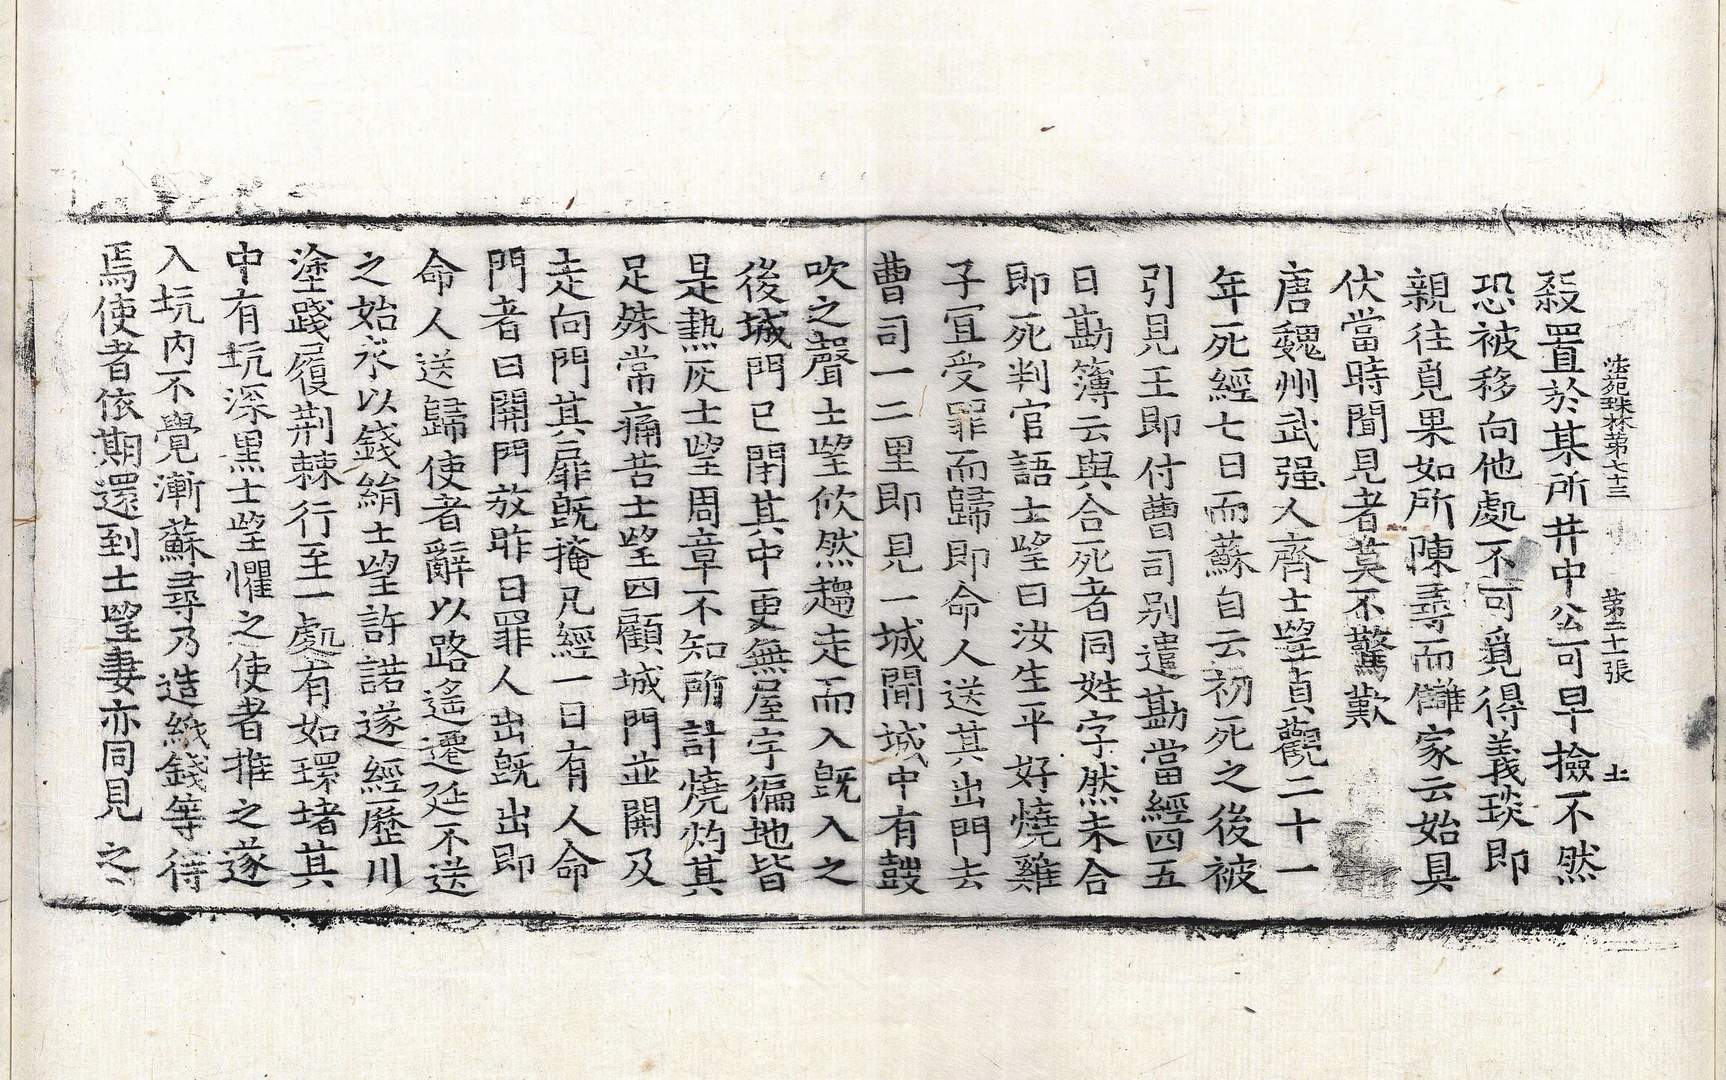 法苑珠林第七十三　第二十張　土
殺置於某所井中公可早撿不然
恐被移向他處不可覓得義琰即
親往覓果如所陳尋而讎家云始具
伏當時聞見者莫不驚歎
唐魏州武强人齊士望貞觀二十一
年死經七日而蘇自云初死之後被
引見王即付曹司别遣勘當經四五
日勘簿云與合死者同姓字然未合
即死判官語士望曰汝生平好燒雞
子宜受罪而歸即命人送其出門去
曹司一二里即見一城聞城中有鼓
吹之聲士望欣然趨走而入旣入之
後城門已閉其中更無屋宇徧地皆
是熱灰士望周章不知所計燒灼其
足殊常痛苦士望四顧城門並開及
走向門其扉旣掩凡經一日有人命
門者曰開門放昨日罪人出旣出即
命人送歸使者辭以路遙遷延不送
之始求以錢絹士望許諾遂經歷川
塗踐履荆棘行至一處有如環堵其
中有坑深黑士望懼之使者推之遂
入坑内不覺漸蘇尋乃造紙錢等待
焉使者依期還到士望妻亦同見之